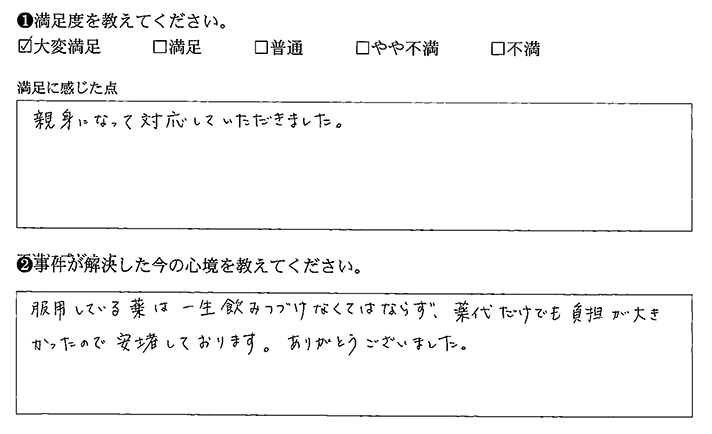 ❶満足度を教えてください。
☑大変満足 □満足 □普通 □やや不満 □不満
満足に感じた点
親身になって対応していただきました。
❷事件が解決した今の心境を教えてください。
服用している薬は一生飲みつづけなくてはならず、薬代だけでも負担が大き
かったので安堵しております。ありがとうございました。